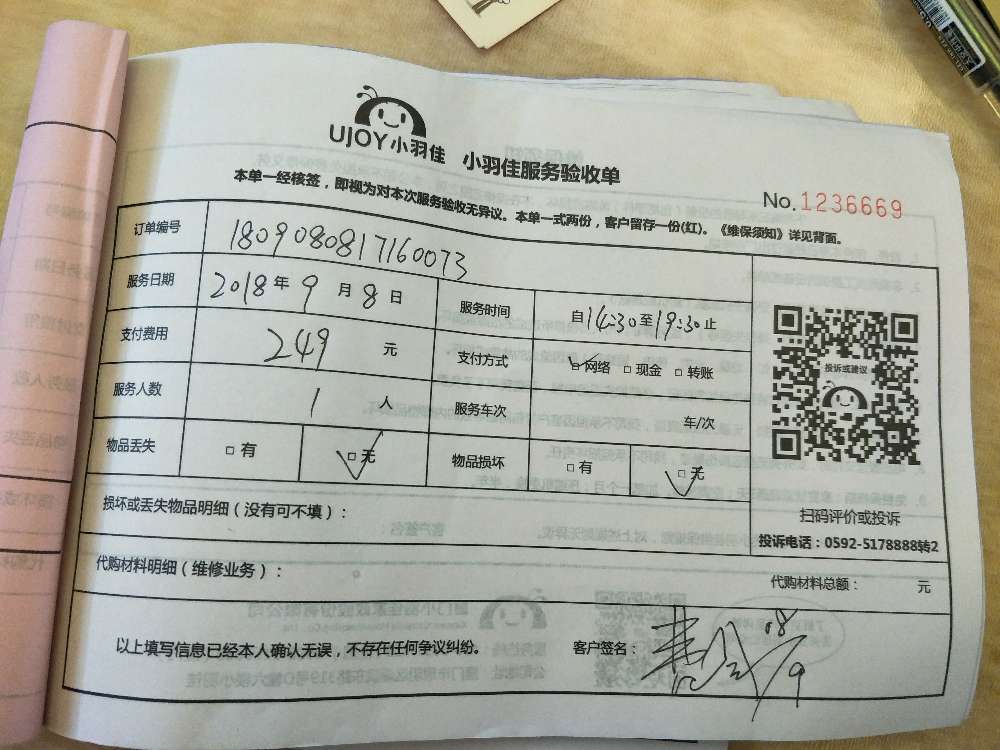 UJOY小羽佳 小羽佳服务验收单
No.1236669
本单一经核签，即视为对本次服务验收无异议。本单一式两份，客户留存一份(红)。《维保须知》详见背面。
订单编号 1809080817160073
服务日期 2018年9月8日 服务时间 自14:30至19:30止
支付费用 249元 支付方式 网络 现金 转账
服务人数 1人 服务车次 车/次
物品丢失 有 无 物品损坏 有 无
损坏或丢失物品明细（没有可不填）：
代购材料明细（维修业务）： 代购材料总额： 元
以上填写信息已经本人确认无误，不存在任何争议纠纷。 客户签名：
投诉或建议
扫码评价或投诉
投诉电话：0592-5178888转2